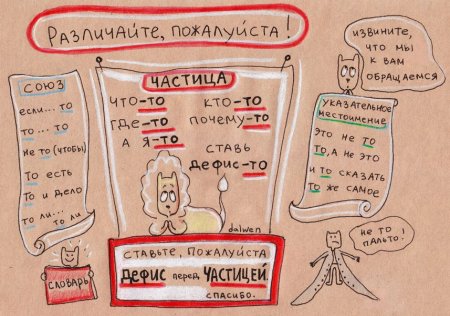 Различайте, пожалуйста!
СОЮЗ
если... то
то... то
не то (чтобы)
То есть
То и дело
то ли...
то ли
ЧАСТИЦА
ЧТО-то
КТО-то
ГДе-то
почему-то
А Я-то
СТАВЬ
Дефис-то
dalwen
СТАВЬТЕ, ПОЖАЛУЙСТА
ДЕФИС перед ЧАСТИЦЕЙ
СПАСИБО.
ИЗВИНИТЕ,
ЧТО МЫ
К ВАМ
ОБРАЩАЕМСЯ
УКАЗАТЕЛЬНОЕ
местоимение
ЭТО НЕ ТО
ТО, А НЕ ЭТО
И ТО СКАЗАТЬ
ТО ЖЕ САМОЕ
НЕ ТО
ПАЛЬТО!
СЛОВАРЬ